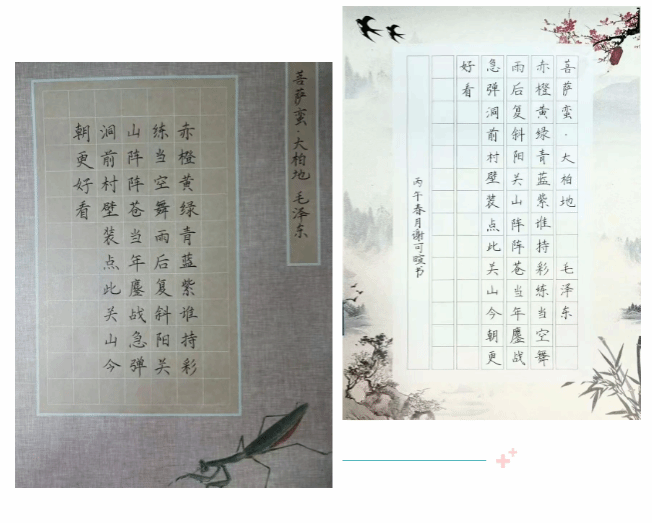 菩萨蛮·大柏地 毛泽东
赤橙黄绿青蓝紫谁持彩
练当空舞雨后复斜阳关
山阵阵苍当年鏖战急弹
洞前村壁装点此关山今
朝更好看
菩萨蛮·大柏地 毛泽东
赤橙黄绿青蓝紫谁持彩练当空舞
雨后复斜阳关山阵阵苍当年鏖战
急弹洞前村壁装点此关山今朝更
好看
丙午春月谢可书